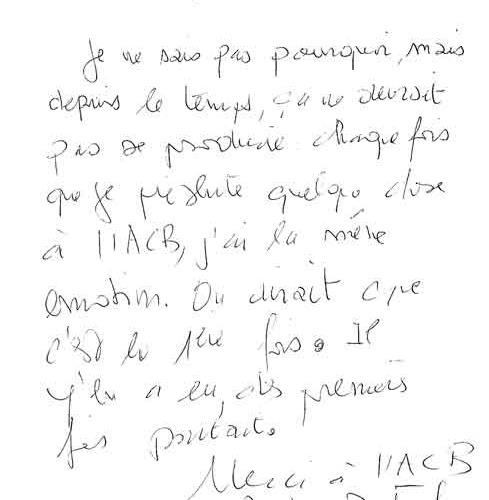 Je ne sais pas pourquoi, mais
depuis le temps, ça ne devrait
pas se produire. Chaque fois
que je présente quelque chose
à l'ACB, j'ai la même
émotion. On dirait que
c'est la 1ère fois. Il
y'en a eu, des premières
fois pourtant.
Merci à l'ACB